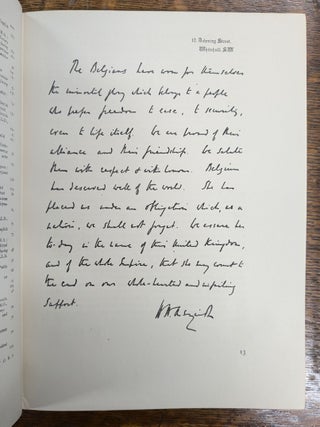 12 Downing Street,
Whitehall, S.W.
The Belgians have won for themselves
the immortal glory which belongs to a people
who prefer freedom to ease, to security,
even to life itself. We are proud of their
alliance and their friendship. We salute
them with respect & with honour. Belgium
has deserved well of the world. She has
placed us under an obligation which, as a
nation, we shall not forget. We assure her
to-day in the name of this United Kingdom,
and of the whole Empire, that she may count to
the end on our whole-hearted and unfailing
support.
H H Asquith
13